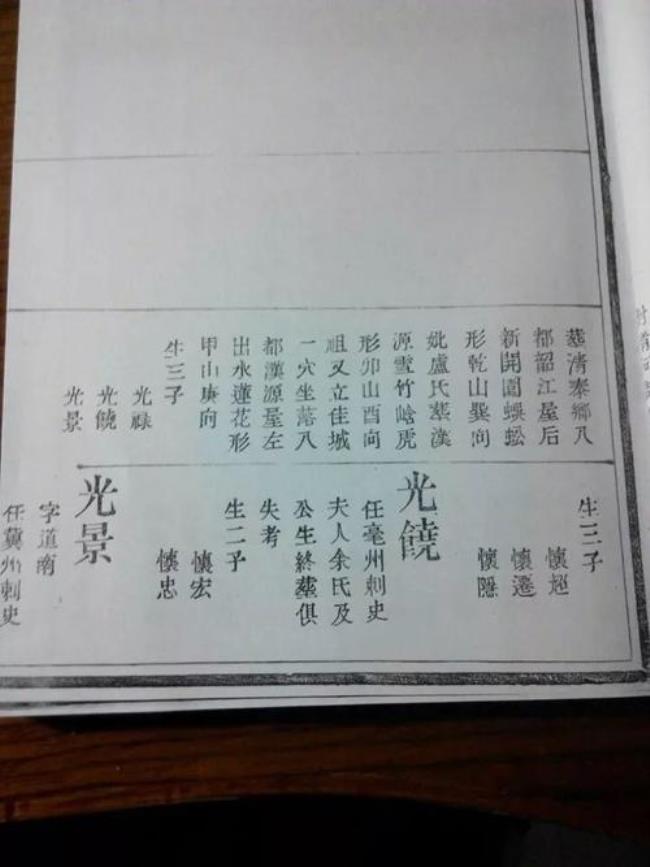 葬清泰鄉八
都韶江屋后
新開園蜈蚣
形乾山巽向
妣盧氏葬漢
源雪竹峆虎
形卯山酉向
祖又立佳城
一穴坐落八
都漢源屋左
出水蓮花形
甲山庚向
生三子
光祿
光饒
光景
生三子
懷遷
懷隱
光饒
任亳州刺史
夫人余氏及
公生終葬俱
失考
生二子
懷宏
懷忠
光景
字道南
任冀州刺史